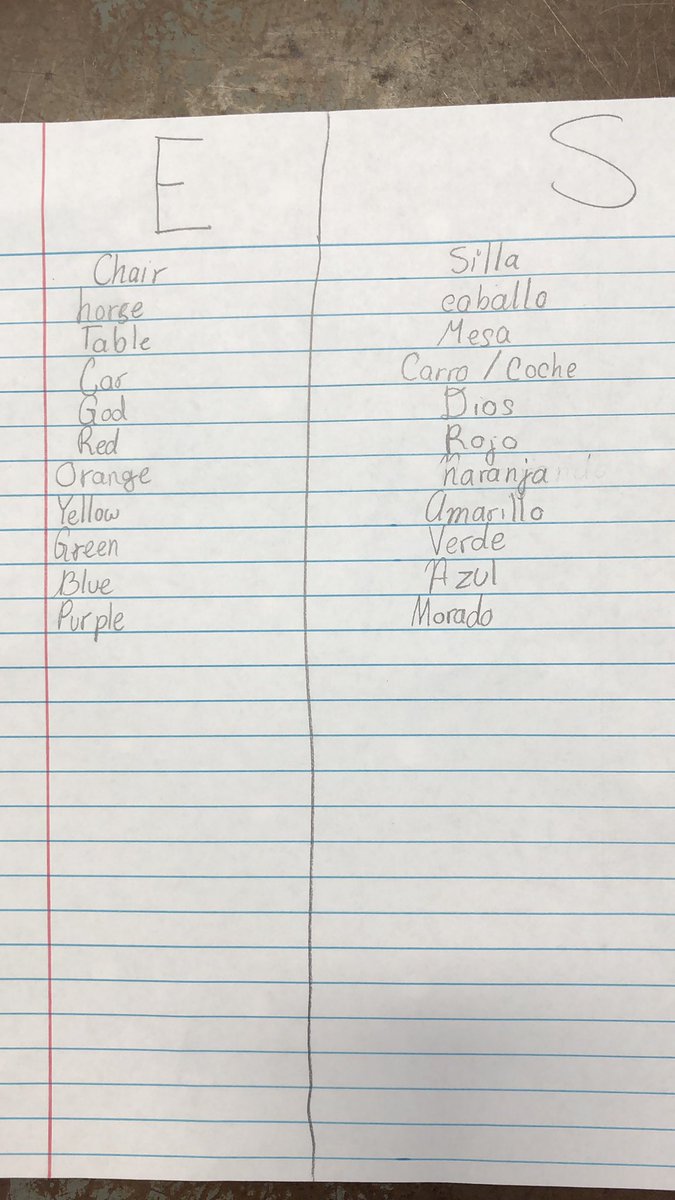 E S
Chair Silla
horse caballo
Table Mesa
Car Carro / Coche
God Dios
Red Rojo
Orange naranja
Yellow Amarillo
Green Verde
Blue Azul
Purple Morado